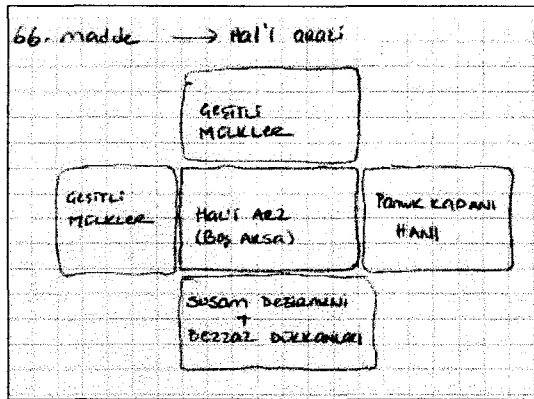 66. madde → Hal'i arazi
ÇEŞİTLİ
MÜLKLER
ÇEŞİTLİ
MÜLKLER
Hal'i ARZ
(Boş ARSA)
Pamuk KAPANI
HANI
SUSAM DEĞİRMENİ
+
BEZZAZ DÜKKANLARI